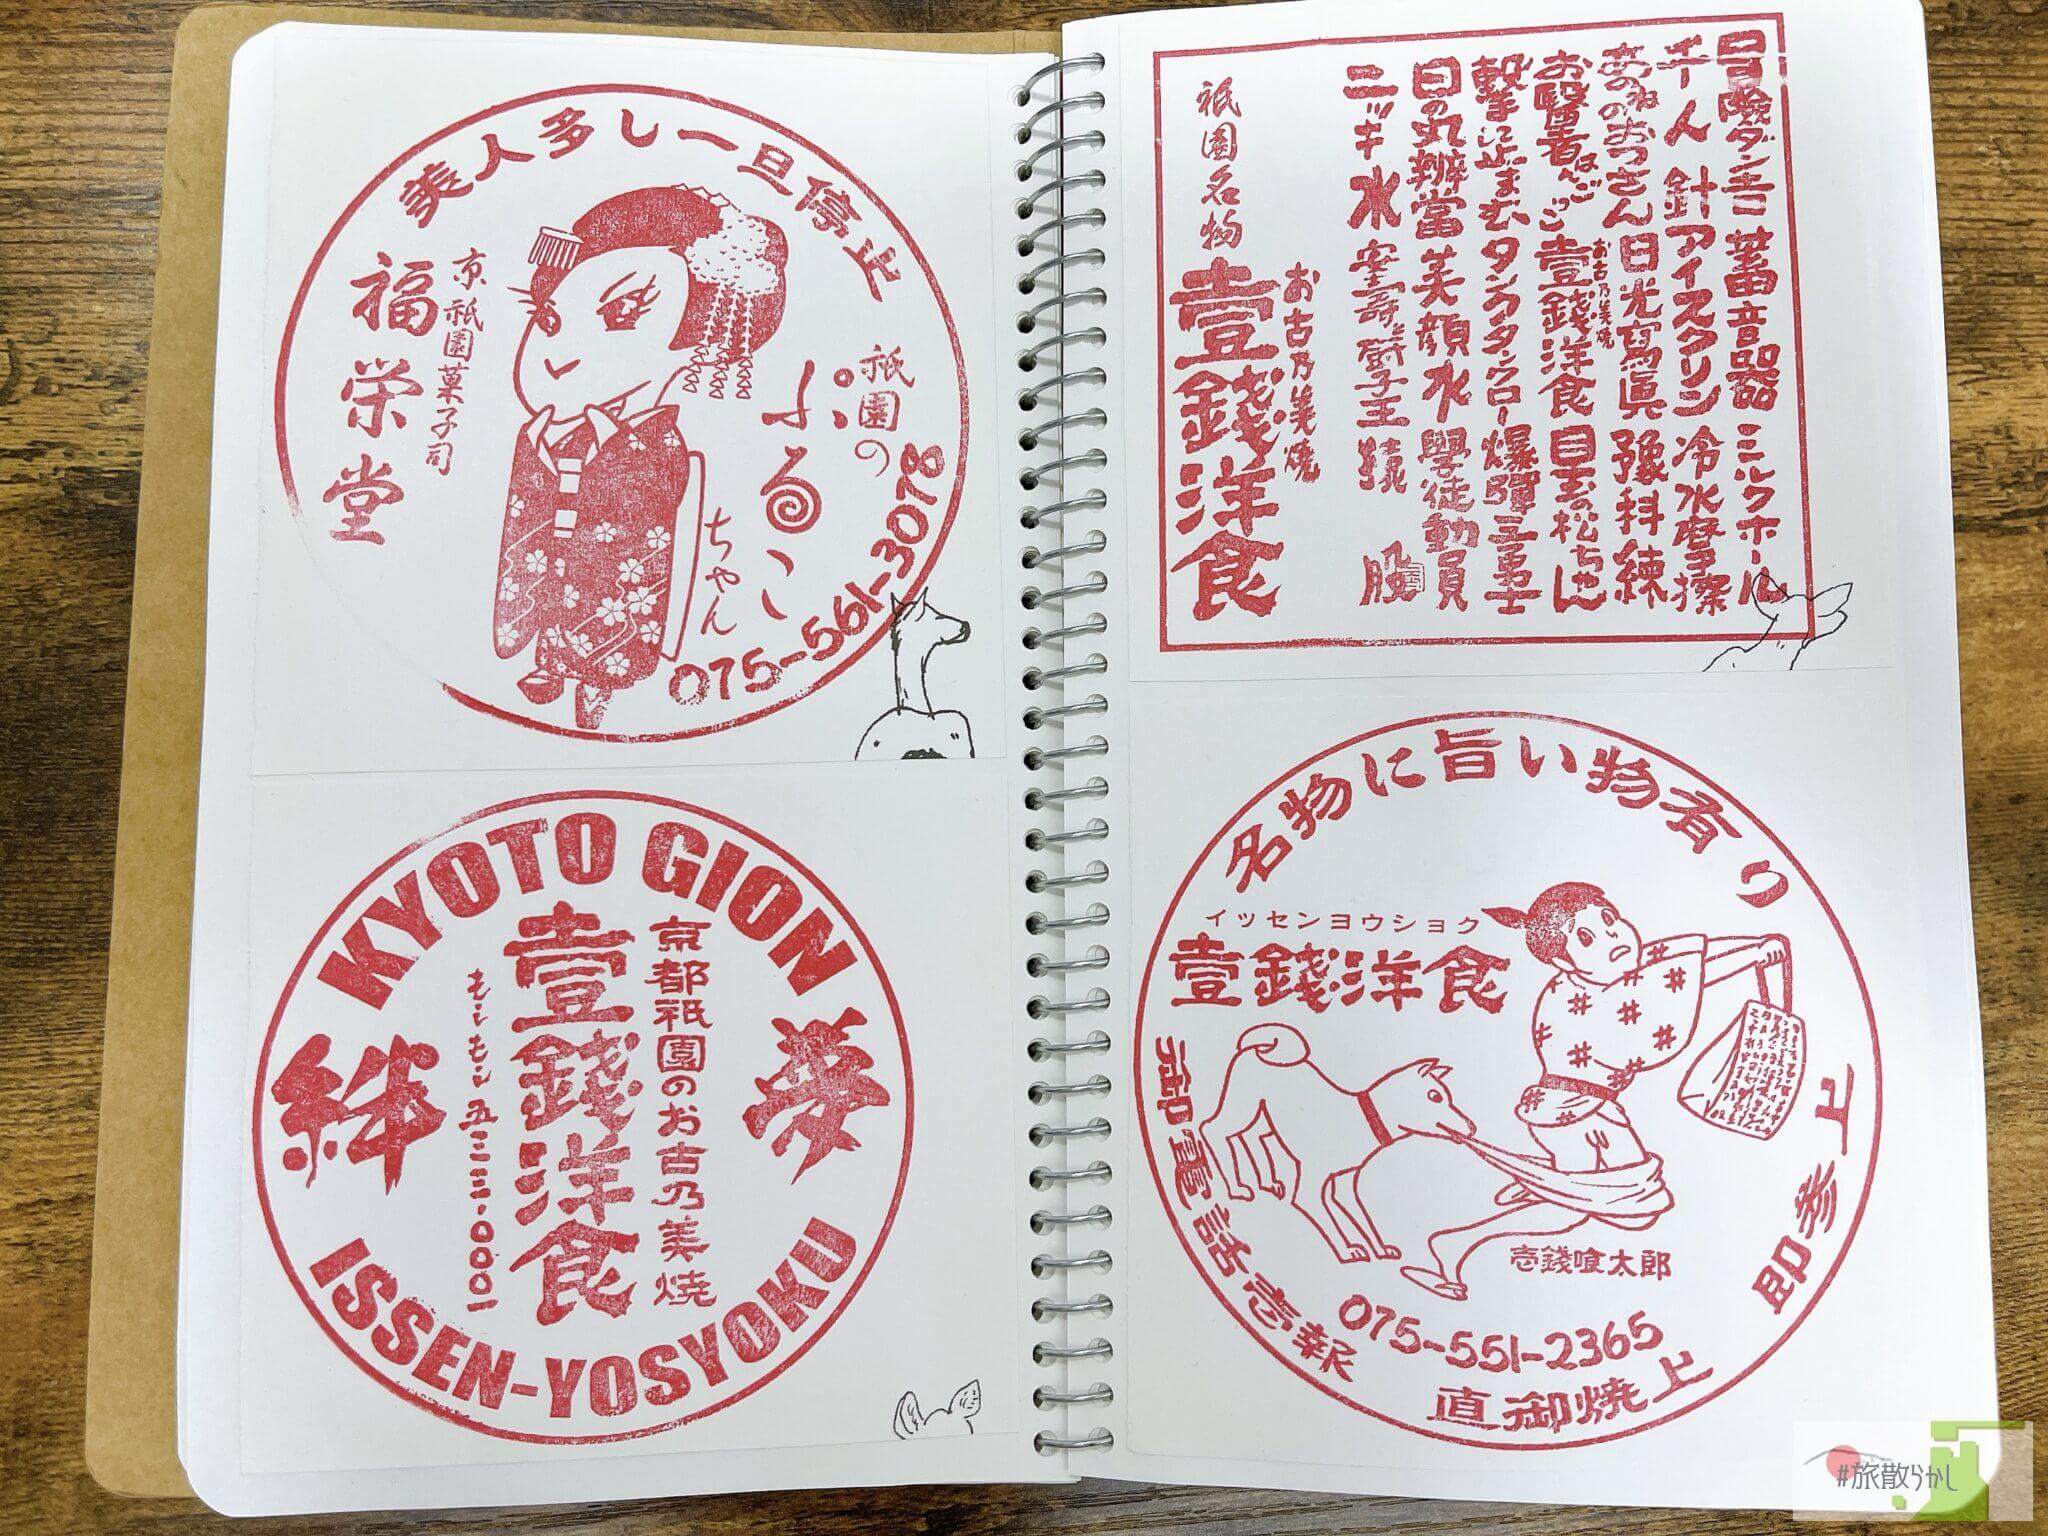 美人多し一旦停止
京祇園菓子司
福栄堂
祇園の
ぷるこ
ちゃん
075-561-3078
KYOTO GION
京都祇園のお古乃美焼
壹錢洋食
もしもし五三三・〇〇〇一
夢
絆
ISSEN-YOSYOKU
冒険ダン吉 蓄音器 ミルクホール
千人針 アイスクリン 冷水摩擦
あのねのおっさん 日光寫眞 豫科練
お醫者はんごっこ お古乃美焼 壹錢洋食 目玉の松ちゃん
撃に止まむ タンクタンクロー 爆彈三勇士
日の丸辨當 美顔水 學徒動員
ニッキ水 安壽と厨子王 猿股
お古乃美燒
祇園名物 壹錢洋食
名物に旨い物有り
イッセンヨウショク
壹錢洋食
壱錢喰太郎
075-551-2365
御電話壱報
直御焼上
即参上
#旅散らかし